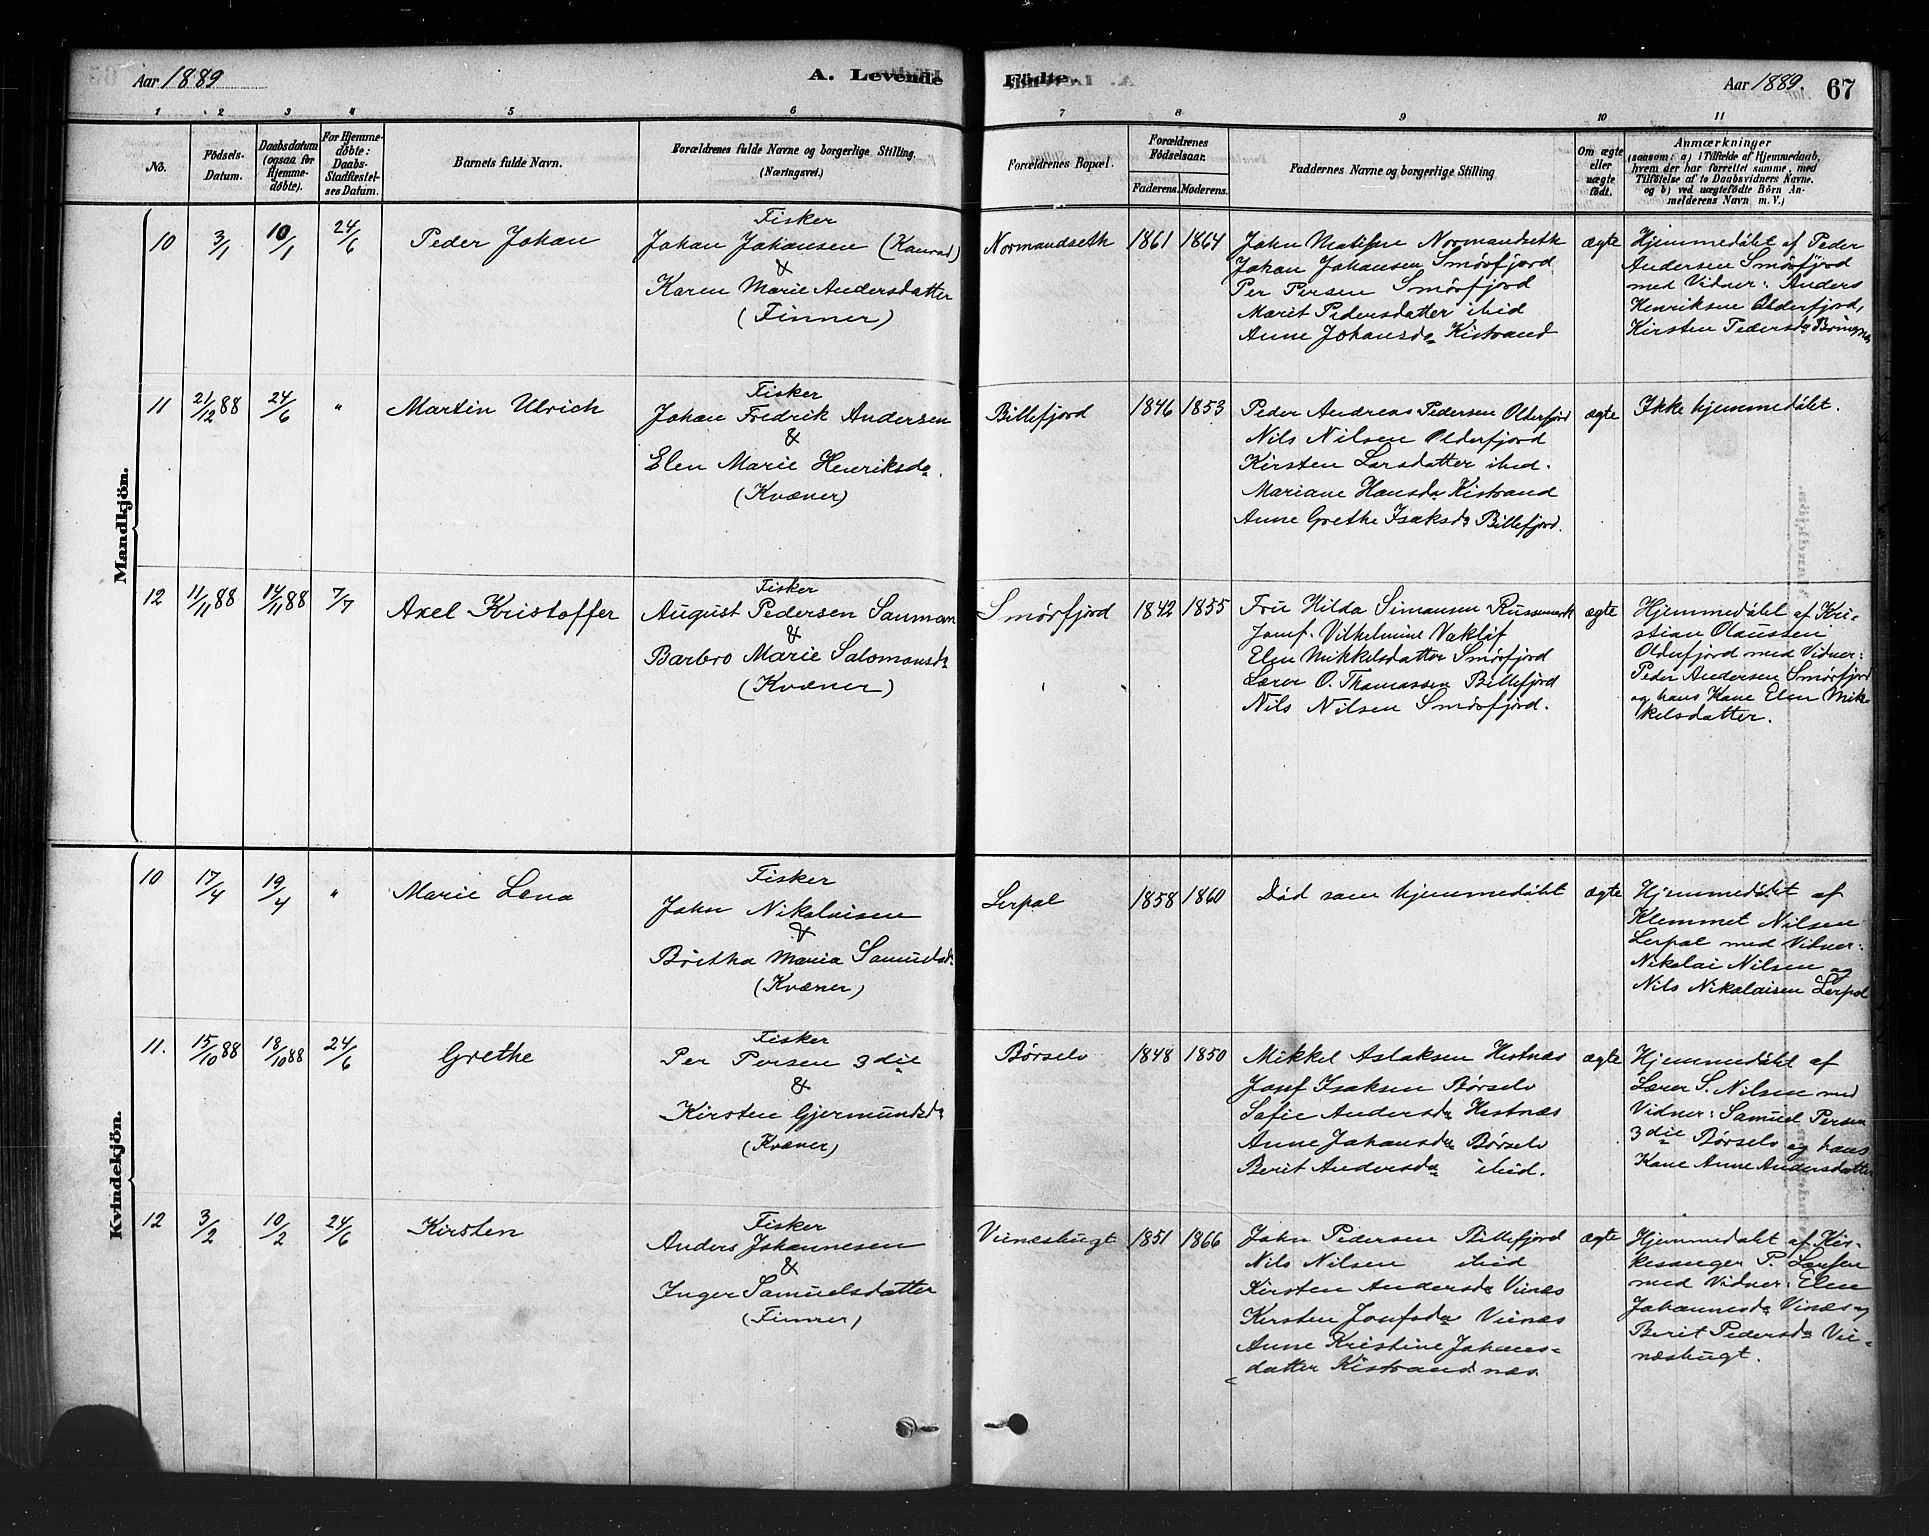 Aar 1889
A. Levende
Fødte.
Aar 1889.
67
1 2 3 4 5 6 7 8 9 10 11
No.
Födsels-
Datum.
Daabsdatum
(ogsaa for
Hjemme-
døbte).
For Hjemme-
døbte:
Daabs-
Stadfæstel-
ses Datum.
Barnets fulde Navn.
Forældrenes fulde Navne og borgerlige Stilling.
(Næringsvei.)
Forældrenes Bopæl.
Forældrenes
Födselsaar.
Faderens. Moderens.
Faddernes Navne og borgerlige Stilling
Om ægte
eller
uægte
født.
Anmærkninger
(saasom: a) i Tilfælde af Hjemmedaab,
hvem der har forrettet samme, med
Tilföielse af to Daabsvidners Navne.
og b) ved uægtefödte Börn An-
melderens Navn m. V.)
Mandkjön.
10
3/1
10/1
24/6
Peder Johan
Fisker
Johan Johansen (Konrad)
&
Karen Marie Andersdatter
(Finner)
Normandseth
1861 1864
John Mathisen Normandseth
Johan Johansen Smörfjord
Per Persen Smörfjord
Marit Pedersdatter ibid
Anne Johansda Kistrand
ægte
Hjemmedöbt af Peder
Andersen Smörfjord
med Vidner: Anders
Henriksen Olderfjord,
Kirsten Pedersda
11
21/12 88
24/6
"
Martin Ulrich
Fisker
Johan Fredrik Andersen
&
Elen Marie Henriksda.
(Kvæner)
Billefjord
1846 1853
Peder Andreas Pedersen Olderfjord
Nils Nilsen Olderfjord
Kirsten Larsdatter ibid.
Mariane Hansda Kistrand
Anne Grethe Isaksda Billefjord.
ægte
Ikke hjemmedöbt.
12
11/11 88
14/11 88
7/7
Axel Kristoffer
Fisker
August Pedersen Sauman
&
Barbro Marie Salomonsda
(Kvæner)
Smörfjord
1842 1855
Fru Hilda Simonsen Russemark
Jomf. Vilhelmine
Elen Mikkelsdatter Smörfjord
Lærer O. Thomassen Billefjord
Nils Nilsen Smörfjord.
ægte
Hjemmedöbt af Kri-
stian Olaussen
Olderfjord med Vidner:
Peder Andersen Smörfjord
og hans Kone Elen Mik-
kelsdatter.
Kvindekjön.
10
17/4
19/4
"
Marie Lena
Fisker
John Nikolaisen
&
Britha Maria Samuelsda
(Kvæner)
Lerpol
1858 1860
Död som hjemmedöbt
ægte
Hjemmedöbt af
Klemmet Nilsen
Lerpol med Vidner:
Nikolai Nilsen og
Nils Nikolaisen Lerpol
11.
15/10 88
18/10 88
24/6
Grethe
Fisker
Per Persen 3die
&
Kirsten Gjermundsda
(Kvæner)
Børselv
1848 1850
Mikkel Aslaksen Hestnæs
Josef Isaksen Børselv
Sofie Andersda Hestnæs
Anne Johansda Børselv
Berit Andersda ibid.
ægte
Hjemmedöbt af
Lærer S. Nilsen med
Vidner: Samuel Persen
3die Børselv og hans
Kone Anne Andersdatter
12
3/2
10/2
24/6
Kirsten
Fisker
Anders Johannesen
&
Inger Samuelsdatter
(Finner)
Viinesbugt
1851 1866
John Pedersen Billefjord
Nils Nilsen ibid
Kirsten Andersda Viinæs
Kirsten Josefsda Viinæs
Anne Kristine Johans-
datter Kistrandnæs.
ægte
Hjemmedöbt af Kir-
kesanger P. Larsen
med Vidner: Elen
Johannesda Vinæs og
Berit Pedersda Vii-
næsbugt.